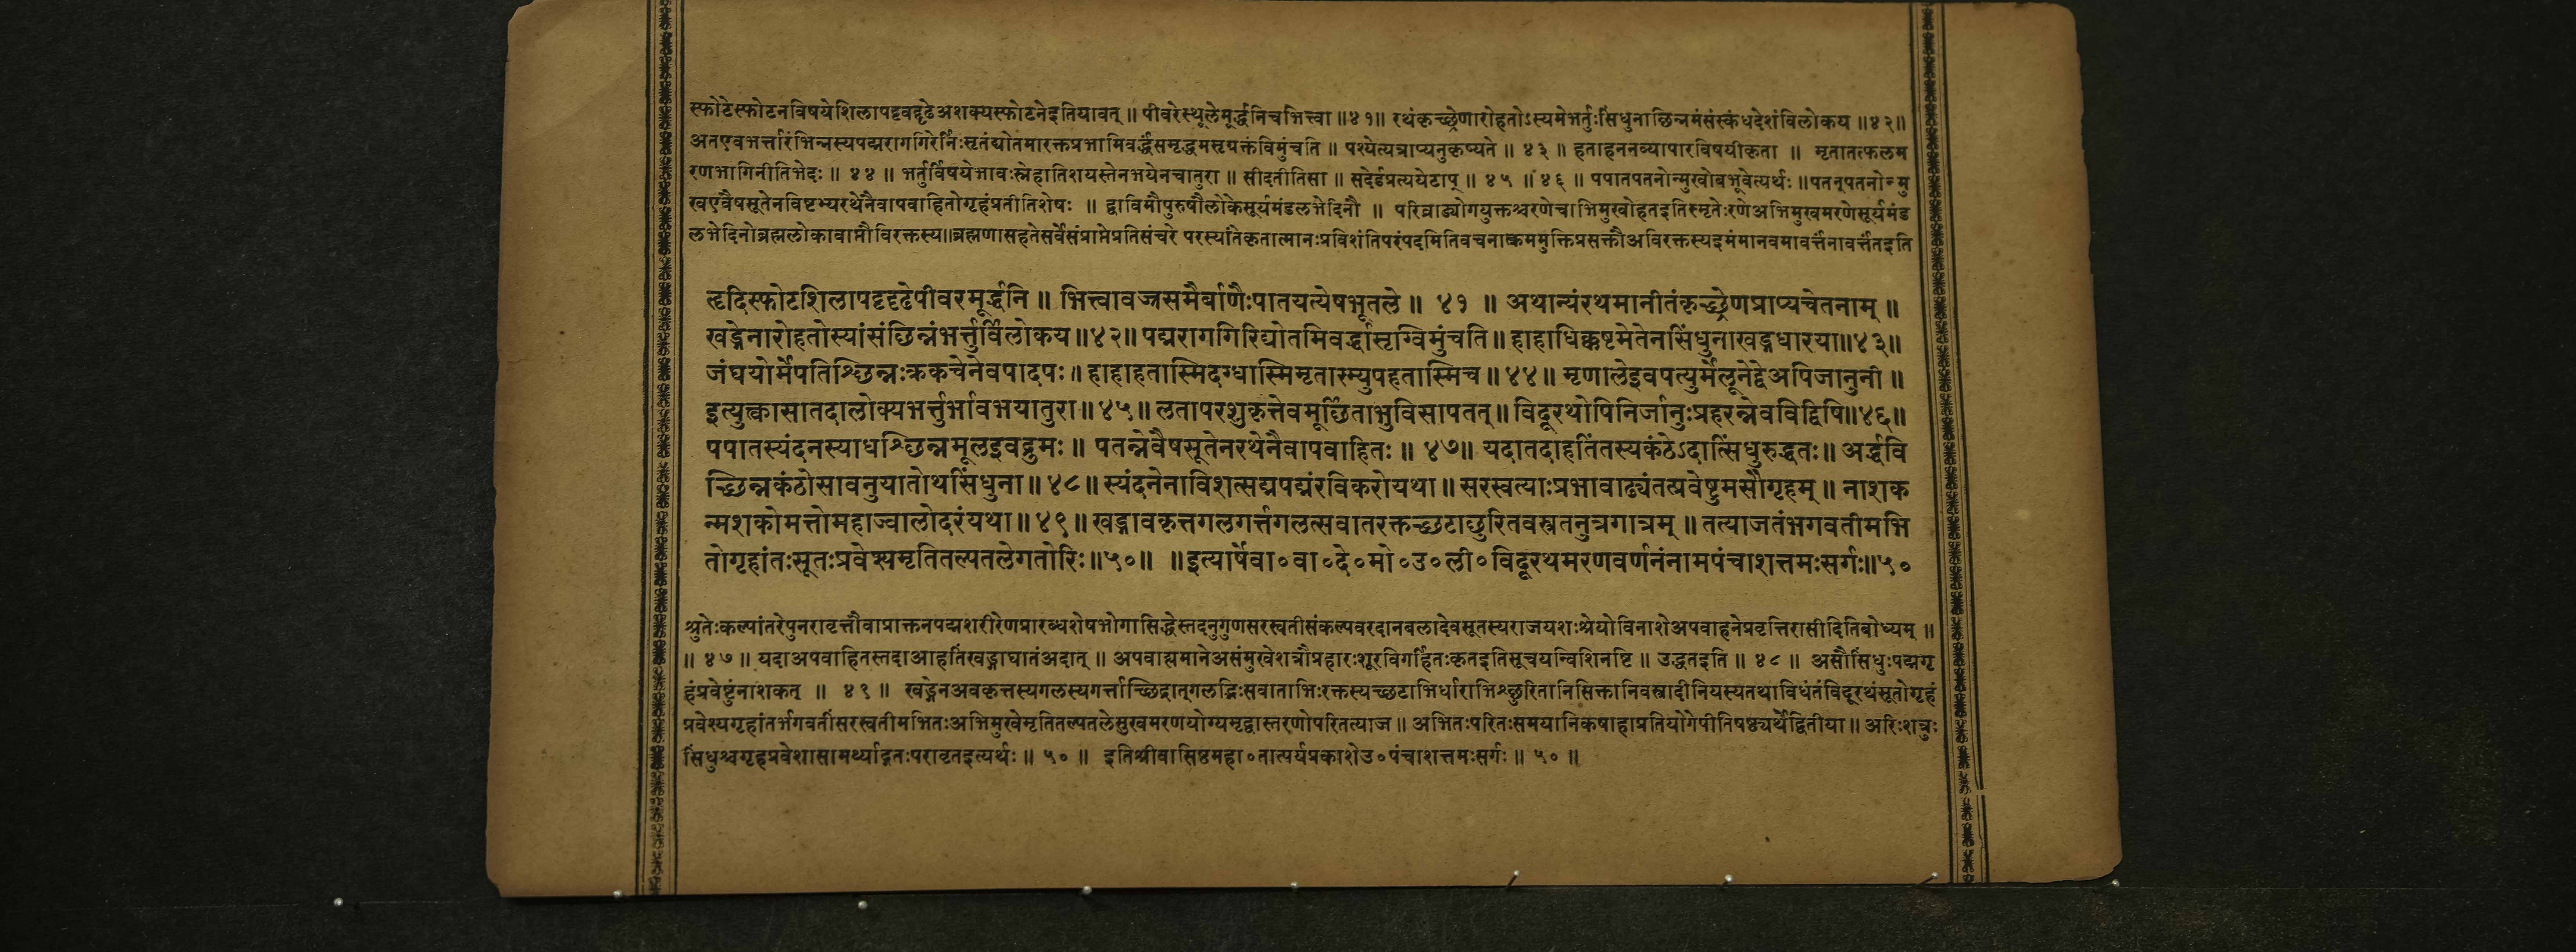 स्फोटेस्फोटनविषयेशिलापट्टवद्दृढेअशक्यस्फोटनेइतियावत् ॥ पीवरेस्थूलेमूर्द्धनिचभित्त्वा ॥४१॥ रथंकृच्छ्रेणारोहतोऽस्यमेभर्तुःसिंधुनाछिन्नमंसंस्कंधदेशंविलोकय ॥४२॥
अतएवभर्त्तारंभिन्नस्यपद्मरागगिरेर्निःसृतंद्योतमारक्तप्रभामिवर्द्धंसमृद्धमसृग्रक्तंविमुंचति ॥ पश्येत्यत्राप्यनुकृष्यते ॥ ४३ ॥ हताहननव्यापारविषयीकृता ॥ मृतातत्फलम
रणभागिनीतिभेदः ॥ ४४ ॥ भर्तुर्विषयेभावःस्नेहातिशयस्तेनभयेनचातुरा ॥ सीदतीतिसा ॥ सदेर्डप्रत्ययेटाप् ॥ ४५ ॥ ४६ ॥ पपातपतनोन्मुखोबभूवेत्यर्थः ॥पतन्पतनोन्मु
खएवैषसूतेनविष्टभ्यरथेनैवापवाहितोगृहंप्रतीतिशेषः ॥ द्वाविमौपुरुषौलोकेसूर्यमंडलभेदिनौ ॥ परिव्राड्योगयुक्तश्चरणेचाभिमुखोहतइतिस्मृतेःरणेअभिमुखमरणेसूर्यमंड
लभेदिनोब्रह्मलोकावाप्तौविरक्तस्य॥ब्रह्मणासहतेसर्वेसंप्राप्तेप्रतिसंचरे परस्यांतेकृतात्मानःप्रविशंतिपरंपदमितिवचनात्क्रममुक्तिप्रसक्तौअविरक्तस्यइमंमानवमावर्त्तंनावर्त्तंतइति
हृदिस्फोटशिलापट्टदृढेपीवरमूर्द्धनि ॥ भित्त्वावज्रसमैर्बाणैःपातयत्येषभूतले ॥ ४१ ॥ अथान्यंरथमानीतंकृच्छ्रेणप्राप्यचेतनाम् ॥
खड्गेनारोहतोस्यांसंछिन्नंभर्त्तुर्विलोकय॥४२॥ पद्मरागगिरिद्योतमिवर्द्धासृग्विमुंचति॥ हाहाधिक्कष्टमेतेनसिंधुनाखड्गधारया॥४३॥
जंघयोर्मेपतिश्छिन्नःक्रकचेनेवपादपः॥ हाहाहतास्मिदग्धास्मिमृतास्म्युपहतास्मिच॥ ४४॥ मृणालेइवपत्युर्मेलूनेद्वेअपिजानुनी ॥
इत्युक्त्वासातदालोक्यभर्त्तुर्भावभयातुरा॥४५॥ लतापरशुकृत्तेवमूर्छिताभुविसापतत्॥ विदूरथोपिनिर्जानुःप्रहरन्नेवविद्विषि॥४६॥
पपातस्यंदनस्याधश्छिन्नमूलइवद्रुमः॥ पतन्नेवैषसूतेनरथेनैवापवाहितः॥ ४७॥ यदातदाहतिंतस्यकंठेऽदात्सिंधुरुद्धतः॥ अर्द्धवि
च्छिन्नकंठोसावनुयातोथसिंधुना॥ ४८॥ स्यंदनेनाविशत्सद्मपद्मंरविकरोयथा॥ सरस्वत्याःप्रभावाढ्यंतत्प्रवेष्टुमसौगृहम्॥ नाशक
न्मशकोमत्तोमहाज्वालोदरंयथा॥ ४९॥ खड्गावकृत्तगलगर्त्तगलत्सवातरक्तच्छटाछुरितवस्त्रतनुत्रगात्रम्॥ तत्याजतंभगवतीमभि
तोगृहांतःसूतःप्रवेश्यमृतितल्पतलेगतोरिः॥५०॥ ॥इत्यार्षेवा०वा०दे०मो०उ०ली०विदूरथमरणवर्णनंनामपंचाशत्तमःसर्गः॥५०
श्रुतेःकल्पांतरेपुनरावृत्तौवाप्राक्तनपद्मशरीरेणप्रारब्धशेषभोगासिद्धेस्तदनुगुणसरस्वतीसंकल्पवरदानबलादेवसूतस्यराजयशःश्रेयोविनाशेअपवाहनेप्रवृत्तिरासीदितिबोध्यम् ॥
॥ ४७ ॥ यदाअपवाहितस्तदाआहतिंखड्गाघातंअदात् ॥ अपवाह्यमानेअसंमुखेशत्रौप्रहारःशूरविगर्हितःकृतइतिसूचयन्विशिनष्टि ॥ उद्धतइति ॥ ४८ ॥ असौसिंधुःपद्मगृ
हंप्रवेष्टुंनाशकत् ॥ ४९ ॥ खड्गेनअवकृत्तस्यगलस्यगर्त्ताच्छिद्रात्गलद्भिःसवाताभिःरक्तस्यच्छटाभिर्धाराभिश्छुरितानिसिक्तानिवस्त्रादीनियस्यतथाविधंतंविदूरथंसूतोगृहं
प्रवेश्यगृहांतर्भगवतींसरस्वतीमभितःअभिमुखेमृतितल्पतलेसुखमरणयोग्यमृद्वास्तरणोपरितत्याज ॥ अभितःपरितःसमयानिकषाहाप्रतियोगेपीतिषष्ठ्यर्थेद्वितीया॥ अरिःशत्रुः
सिंधुश्चगृहप्रवेशासामर्थ्याद्गतःपरावृतइत्यर्थः ॥ ५० ॥ इतिश्रीवासिष्ठमहा०तात्पर्यप्रकाशेउ०पंचाशत्तमःसर्गः ॥ ५० ॥